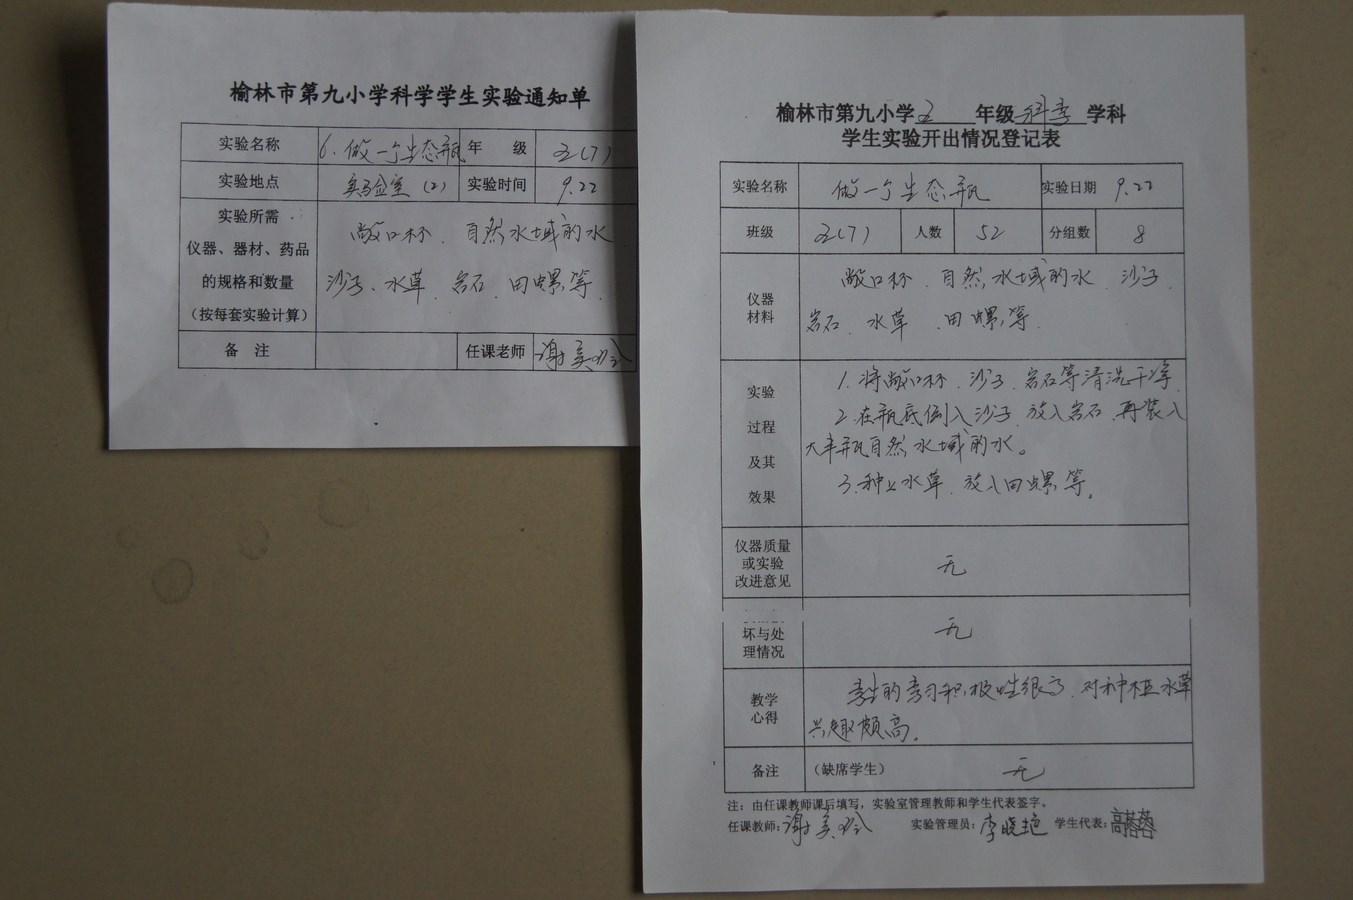 榆林市第九小学科学学生实验通知单
实验名称 6.做一个生态瓶 年 级 五(7)
实验地点 实验室(2) 实验时间 9.22
实验所需
仪器、器材、药品
的规格和数量
(按每套实验计算)
敞口杯、自然水域的水
沙子、水草、岩石、田螺等
备 注 任课老师 谢美玲
榆林市第九小学五年级科学学科
学生实验开出情况登记表
实验名称 做一个生态瓶 实验日期 9.22
班级 五(7) 人数 52 分组数 8
仪器
材料
敞口杯、自然水域的水、沙子、
岩石、水草、田螺等
实验
过程
及其
效果
1.将敞口杯、沙子、岩石等清洗干净
2.在瓶底倒入沙子、放入岩石、再装入
大半瓶自然水域的水。
3.种上水草、放入田螺等。
仪器质量
或实验
改进意见
无
坏与处
理情况
无
教学
心得
学生的学习积极性很高、对种植水草
兴趣颇高。
备注 (缺席学生) 无
注:由任课教师课后填写,实验室管理教师和学生代表签字。
任课教师:谢美玲 实验管理员:李晓艳 学生代表:高蓉蓉